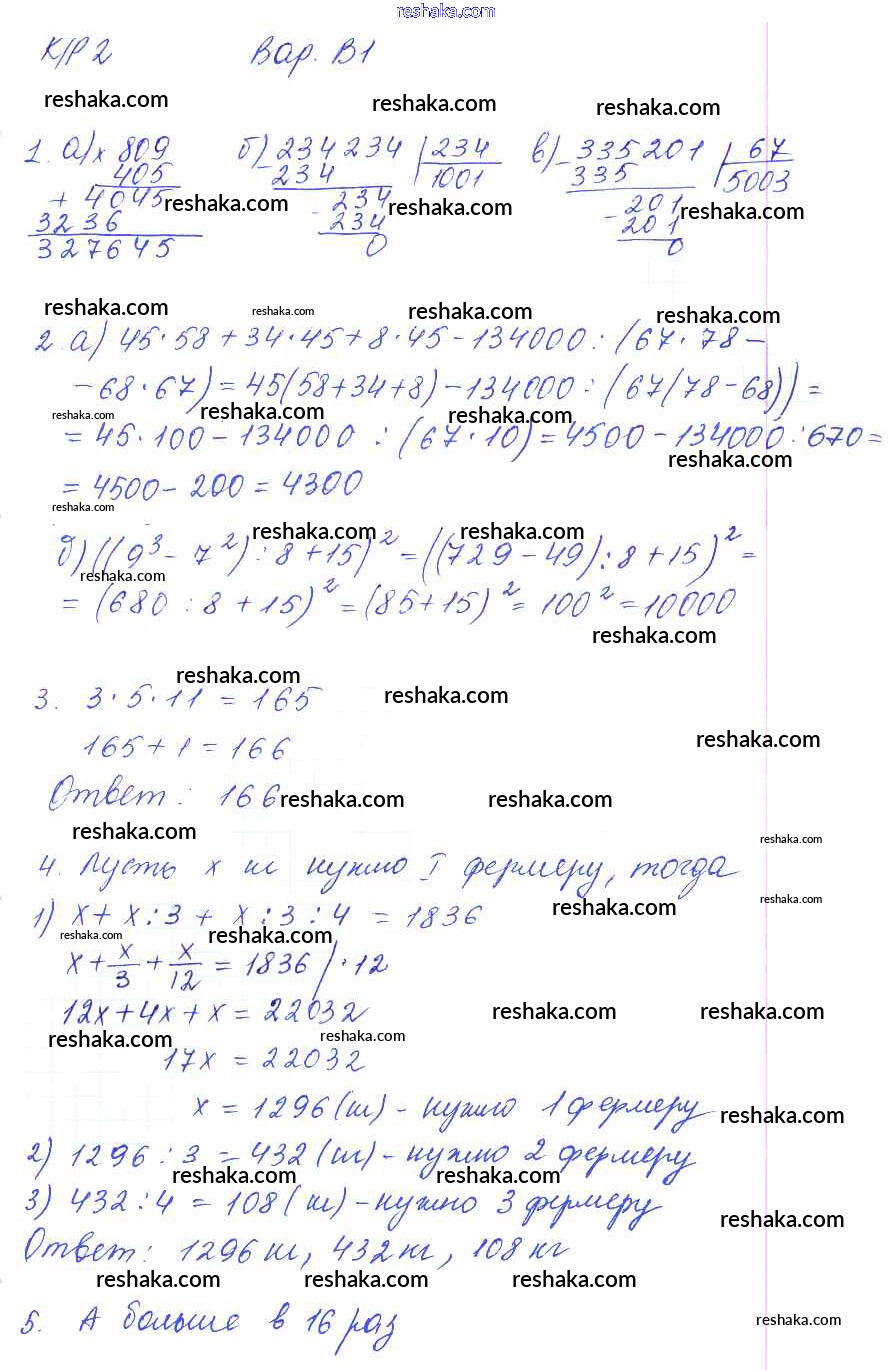 reshaka.com
К/Р 2 Вар. В1
reshaka.com reshaka.com reshaka.com
1. а) × 809 б) - 234234 | 234 в) - 335201 | 67
405 234 1001 335 5003
+ 4045 reshaka.com 234 reshaka.com 201 reshaka.com
3236 - 234 - 201
327645 0 0
reshaka.com reshaka.com reshaka.com reshaka.com
2. а) 45·58 + 34·45 + 8·45 - 134000 : (67·78 -
- 68·67) = 45(58+34+8) - 134000 : (67(78-68)) =
reshaka.com reshaka.com reshaka.com
= 45·100 - 134000 : (67·10) = 4500 - 134000 : 670 =
reshaka.com
= 4500 - 200 = 4300
reshaka.com reshaka.com reshaka.com
б) ((9³ - 7²) : 8 + 15)² = ((729 - 49) : 8 + 15)² =
reshaka.com
= (680 : 8 + 15)² = (85 + 15)² = 100² = 10000
reshaka.com
reshaka.com reshaka.com
3. 3·5·11 = 165
reshaka.com
165 + 1 = 166
Ответ: 166 reshaka.com reshaka.com
reshaka.com reshaka.com
4. Пусть х кг нужно I фермеру, тогда
reshaka.com reshaka.com
1) х + х : 3 + х : 3 : 4 = 1836
reshaka.com reshaka.com
х + х/3 + х/12 = 1836 / ·12
12х + 4х + х = 22032 reshaka.com reshaka.com
reshaka.com reshaka.com
17х = 22032
х = 1296 (кг) - нужно 1 фермеру reshaka.com
2) 1296 : 3 = 432 (кг) - нужно 2 фермеру
reshaka.com reshaka.com
3) 432 : 4 = 108 (кг) - нужно 3 фермеру
reshaka.com
Ответ: 1296 кг, 432 кг, 108 кг
reshaka.com reshaka.com reshaka.com
5. А больше в 16 раз reshaka.com